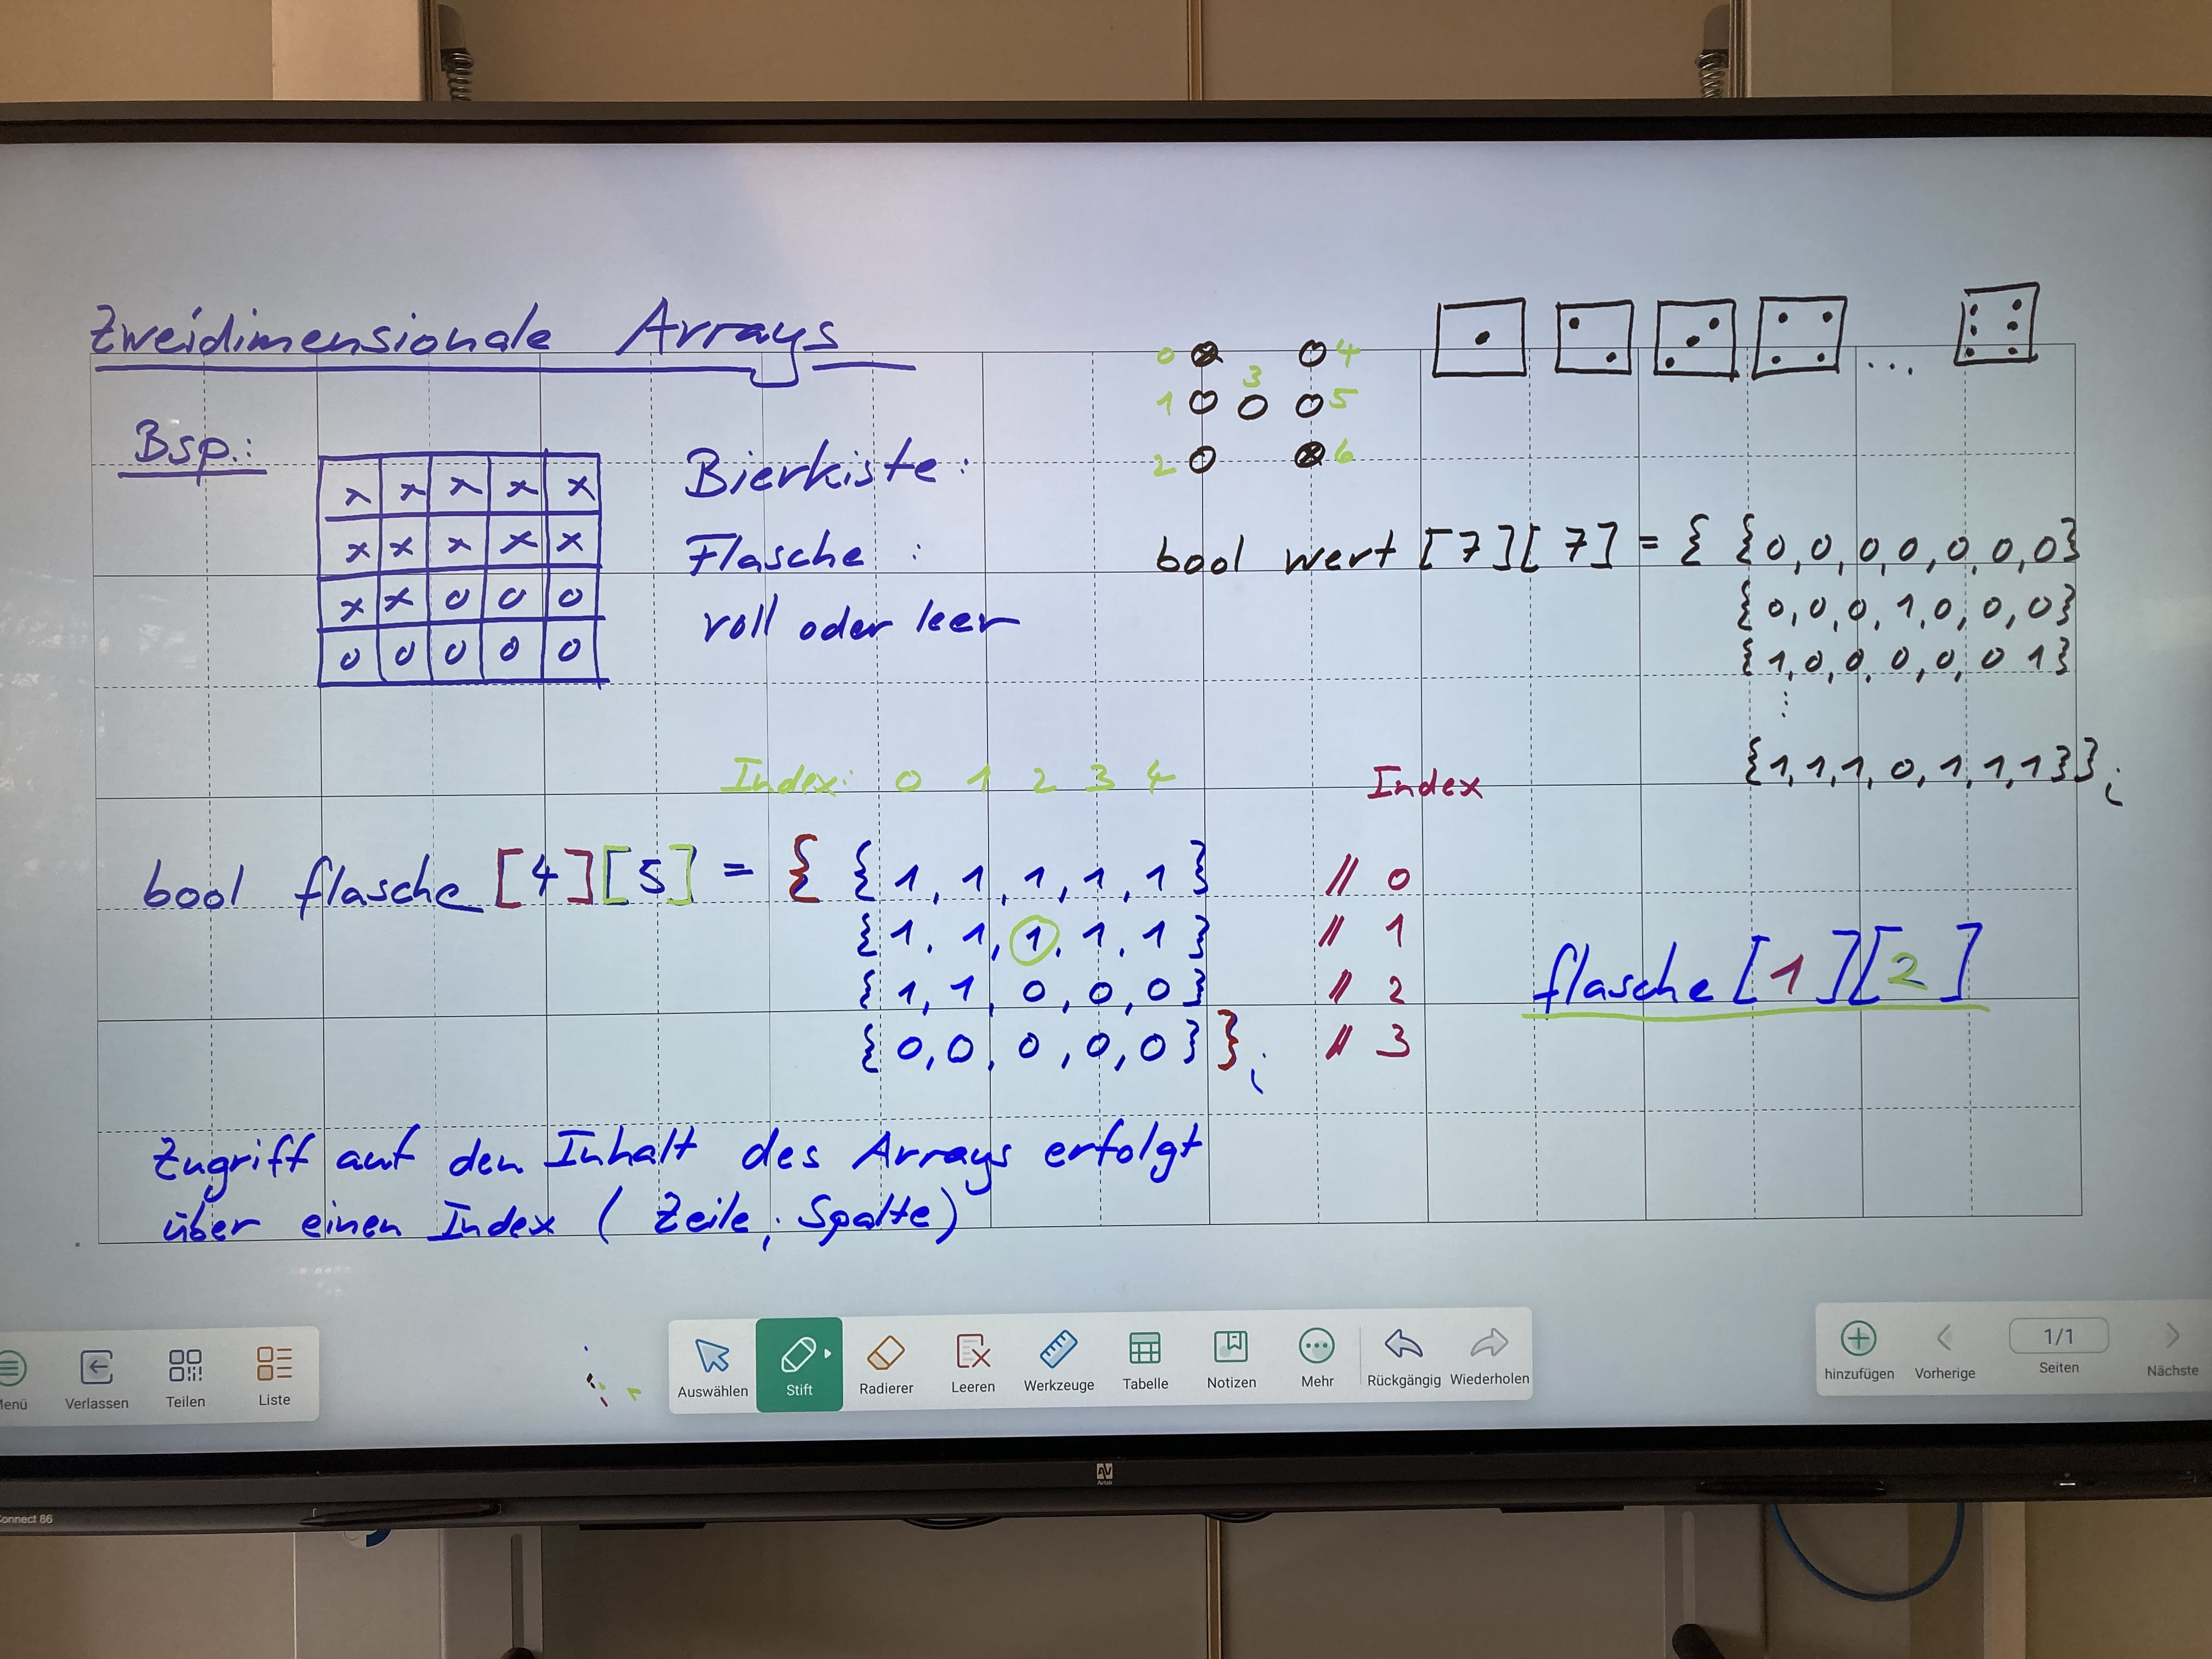 Zweidimensionale Arrays
Bsp.:
x x x x x
x x x x x
x x o o o
o o o o o
Bierkiste:
Flasche :
voll oder leer
0 4
3
1 5
2 6
...
bool wert [7][7] = { {0,0,0,0,0,0,0}
{0,0,0,1,0,0,0}
{1,0,0,0,0,0 1}
⋮
{1,1,1,0,1,1,1}};
Index: 0 1 2 3 4
Index
bool flasche [4][5] = { {1,1,1,1,1} // 0
{1,1,1,1,1} // 1
{1,1,0,0,0} // 2
{0,0,0,0,0}}; // 3
flasche[1][2]
Zugriff auf den Inhalt des Arrays erfolgt
über einen Index (Zeile, Spalte)
Menü
Verlassen
Teilen
Liste
Auswählen
Stift
Radierer
Leeren
Werkzeuge
Tabelle
Notizen
Mehr
Rückgängig
Wiederholen
hinzufügen
Vorherige
1/1
Seiten
Nächste
Connect 86